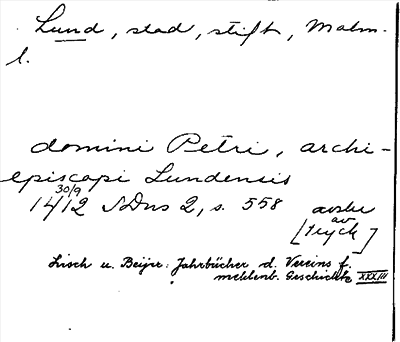 Lund, stad, stift, Malm.
l.
domini Petri, archi-
episcopi Lundensis
30/9
1412 SDns 2, s. 558 avskr
av
[tryck]
Lisch u. Beyer: Jahrbücher d. Vereins f.
meklenb. Geschichte XXXIII